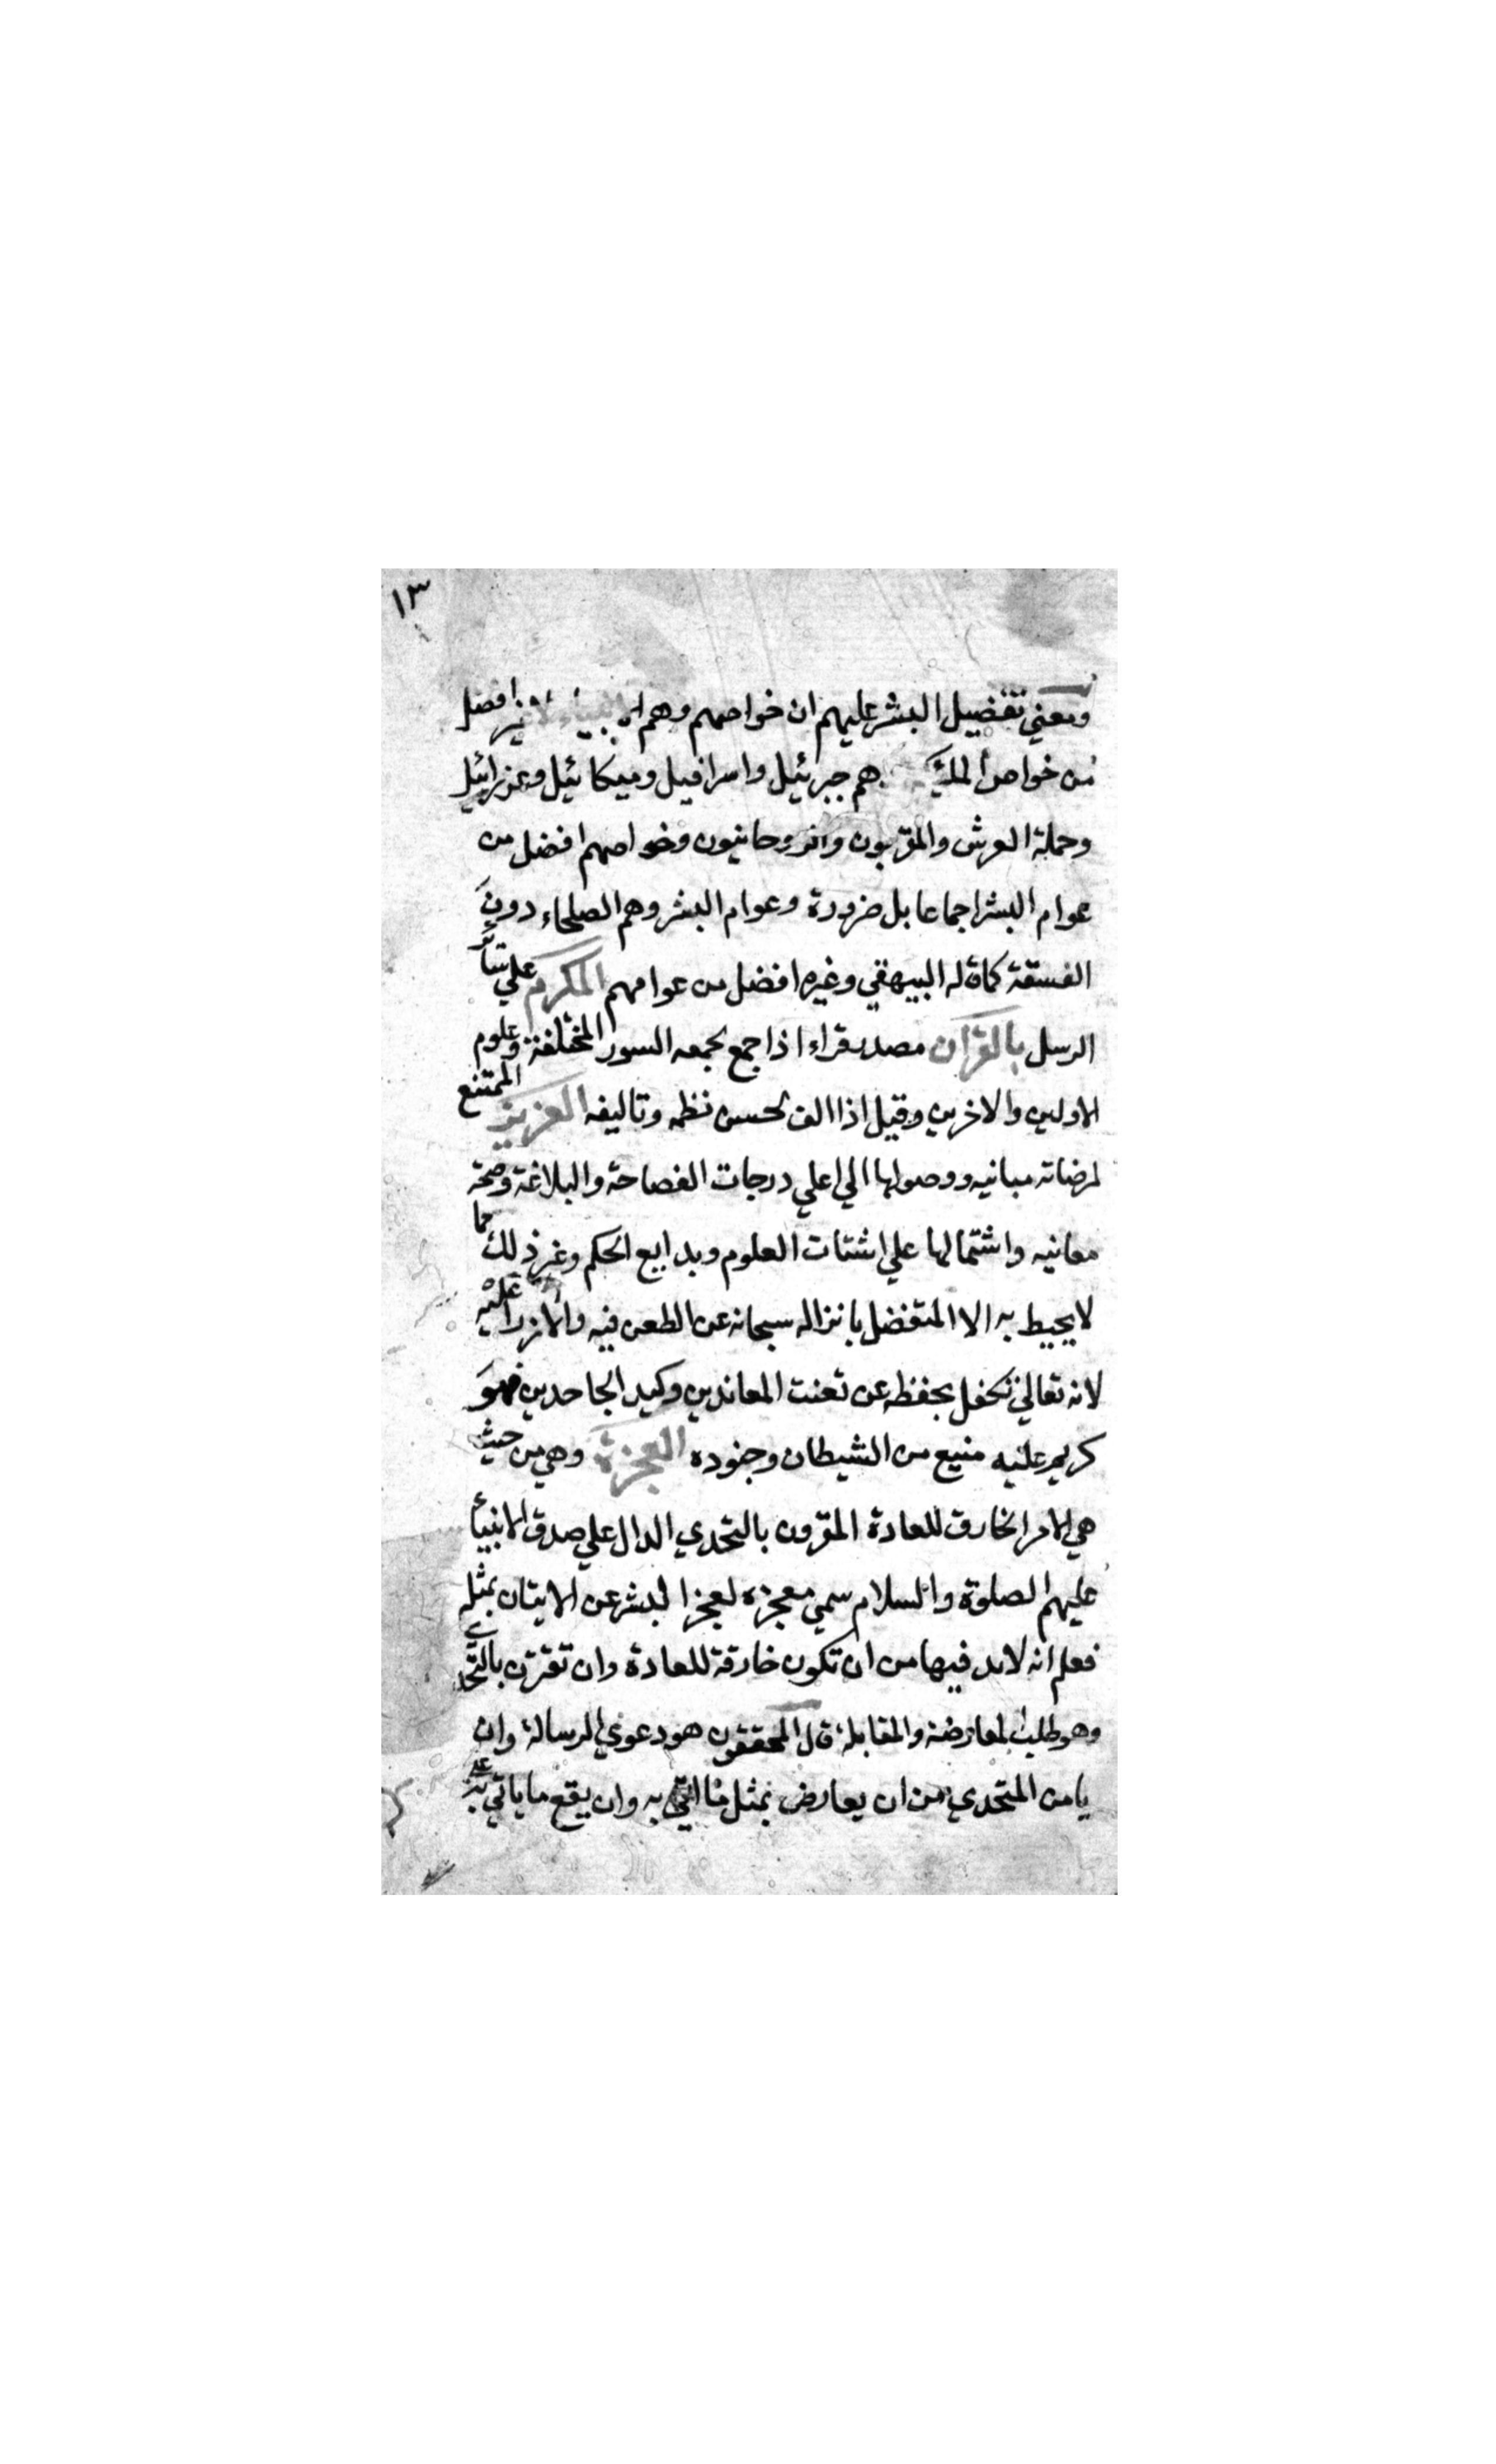 ١٣
ومعني تفضيل البشر عليهم ان خواصهم وهم الانبياء لا غير افضل
من خواص الملئكة وهم جبرئيل واسرافيل وميكائيل وعزرائيل
وحملة العرش والمقربون والروحانيون وخواصهم افضل من
عوام البشر اجماعا بل ضرورة وعوام البشر وهم الصلحاء دون
الفسقة كما قاله البيهقي وغيره افضل من عوامهم المكرم علي سائر
الرسل بالقرآن مصدر قراء اذا جمع لجمعه السور المختلفة وعلوم
الاولين والاخرين وقيل اذا الف لحسن نظمه وتاليفه العزيز الممتنع
لرضانة مبانيه ووصولها الي اعلي درجات الفصاحة والبلاغة وصحة
معانيه واشتمالها علي اشتات العلوم وبدايع الحكم وغير ذلك مما
لا يحيط به الا المتفضل بانزاله سبحانه عن الطعن فيه والازراء عليه
لانه تعالي تكفل بحفظه عن تعنت المعاندين وكيد الجاحدين فهو
كريم عليه منيع من الشيطان وجنوده المعجزة وهي من حيث
هي الامر الخارق للعادة المقرون بالتحدي الدال علي صدق الانبيأ
عليهم الصلوة والسلام سمي معجزه لعجز البشر عن الاتيان بمثله
فعلم انه لا بد فيها من ان تكون خارقة للعادة وان تقترن بالتحدي
وهو طلب المعارضة والمقابلة قال المحققون هو دعوي الرسالة وان
يا من المتحدي من ان يعارض بمثل ما اتي به وان يقع ما ياتي به